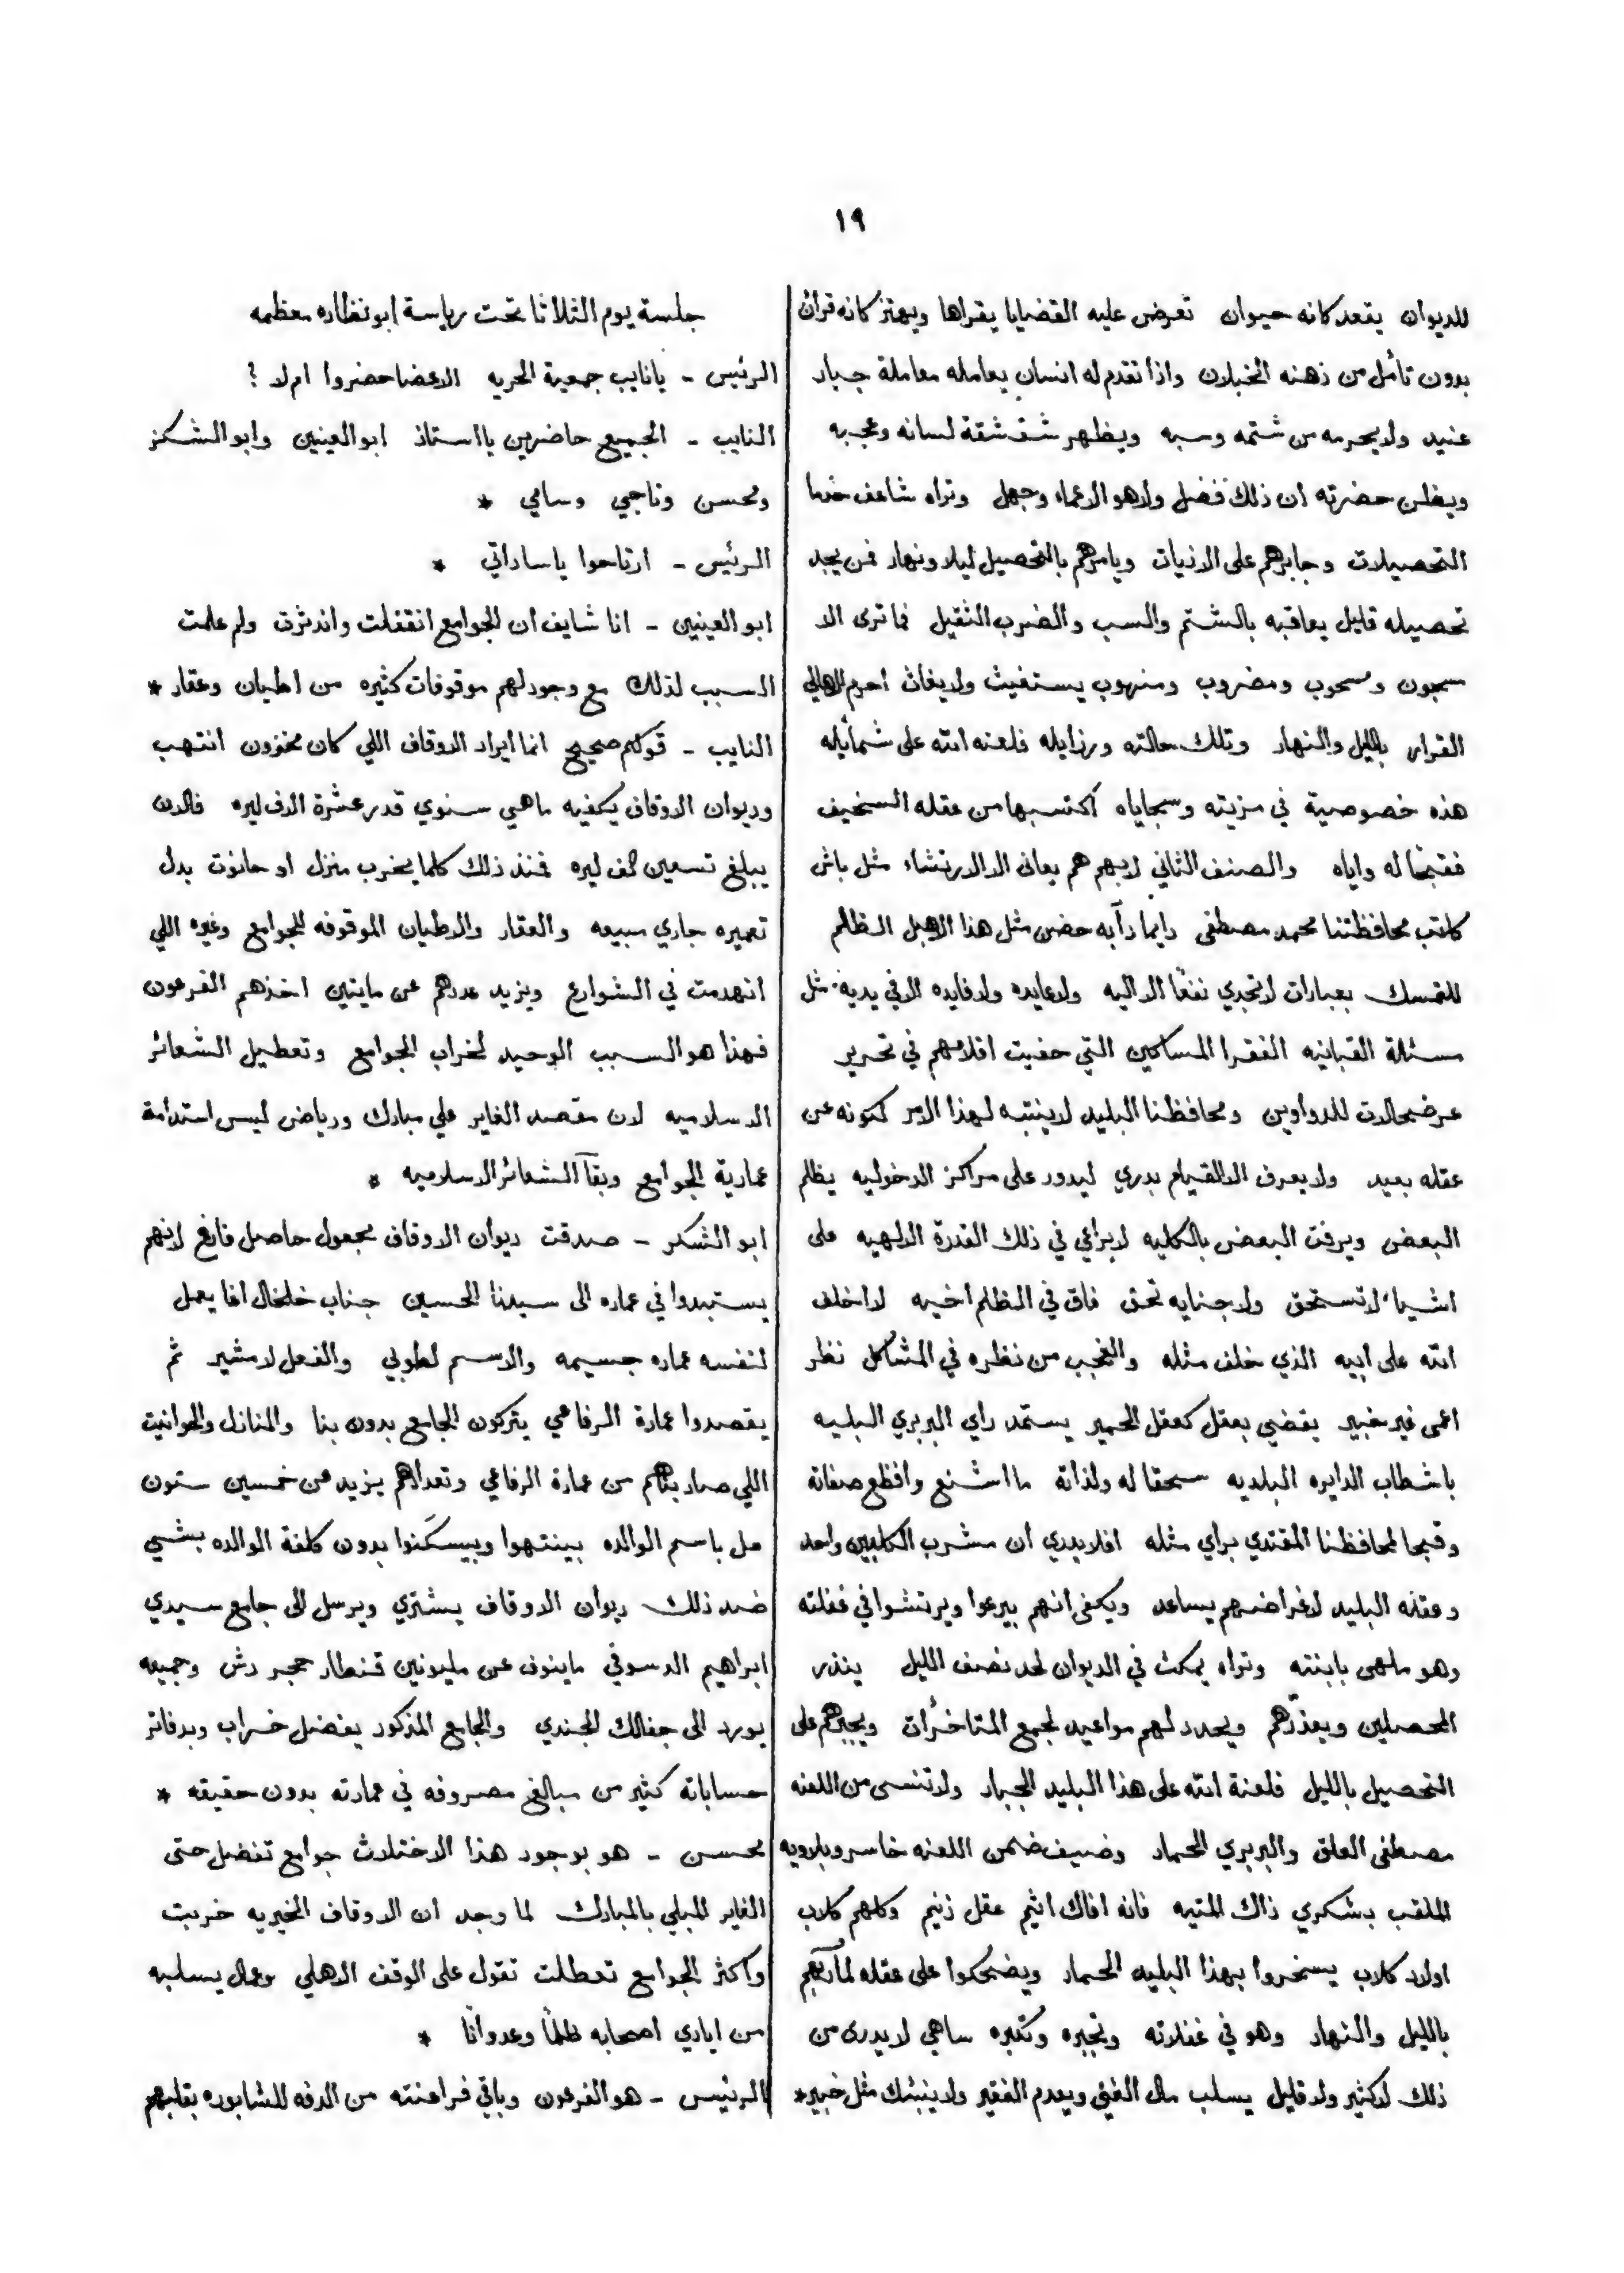 ١٩
للديوان يقعد كانه حيوان تعرض عليه القضايا يقراها ويهتز كانه قرآن
بدون تأمل من ذهنه الخبلان واذا تقدم له انسان يعامله معاملة جبار
عنيد ولا يحرمه من شتمه وسبه ويظهر شقشقة لسانه وعجبه
ويظن حضرته ان ذلك فضل ولا هو الا عماء وجهل وتراه شاغف
التحصيلات وجابرهم على الاذيات ويامرهم بالتحصيل ليلا ونهار فمن يجد
تحصيله قليل يعاقبه بالشتم والسب والضرب الثقيل فما ترى الا
مسجون ومسحوب ومضروب ومنهوب يستغيث ولا يغاث احرم الاهالي
القرار بالليل والنهار وتلك حالته ورزايله فلعنه الله على شمائله
هذه خصوصية في مزيته وسجاياه اكتسبها من عقله السخيف
فقبحًا له واياه والصنف الثاني لا يهم هم يعانى الا الارتشاء مثل باش
كاتب محافظتنا محمد مصطفى دايما دآبه حضن مثل هذا الاهبل الظالم
للتمسك بعبارات لا تجدي نفعًا الا اليه ولا عايده ولا فايده الا في يديه مثل
مسئلة القبانيه الفقرا المساكين التي حفيت اقلامهم في تحرير
عرضحالات للدواوين ومحافظنا البليد لا ينتبه لهذا الامر لكونه عن
عقله بعيد ولا يعرف الا القيام بدري ليدور على مراكز الدخوليه يظلم
البعض ويرفت البعض بالكليه لا يراعي في ذلك القدرة الالهيه على
اشياء لا تستحق ولا جنايه تحق فاق في الظلم اخيه لا اخلف
الله على ابيه الذي خلف مثله والعجب من نظره في المشاكل نظر
اعمى غير خبير يقضي بعقل كعقل الحمير يستمد راي البربري البليه
باشطاب الدايره البلديه سحقا له ولذاته ما اشنع وافظع صفاته
وقبحا لمحافظنا المقتدي براي مثله افلا يدري ان مشرب الكلبين واحد
وعقله البليد لاغراضهم يساعد ويكفى انهم بيرعوا ويرتشوا في غفلته
وهو ملهى بابنته وتراه يمكث في الديوان لحد نصف الليل ينذر
المحصلين ويعذرهم ويحدد لهم مواعيد لجمع المتاخرات ويجبرهم على
التحصيل بالليل فلعنة الله على هذا البليد الجبار ولا تنسى من اللعنه
مصطفى العلق والبربري الحمار وضيف ضمن اللعنه خاسر وبلاويه
الملقب بشكري ذاك المتيه فانه افاك اثيم عقل زنيم وكلهم كلاب
اولاد كلاب يسخروا بهذا البليه الحمار ويضحكوا على عقله لمآربهم
بالليل والنهار وهو في غفلاته وتجبره وتكبره ساهي لا يدرى من
ذلك لا كثير ولا قليل يسلب مال الغني ويعدم الفقير ولا ينبئك مثل خبير *
جلسة يوم الثلاثا تحت رياسة ابو نظاره معظمه
الرئيس - يا نايب جمعية الحريه الاعضا حضروا ام لا ؟
النايب - الجميع حاضرين يا استاذ ابو العينين وابو الشكر
ومحسن وناجي وسامي *
الرئيس - ارتاحوا يا ساداتي *
ابو العينين - انا شايف ان الجوامع انقفلت واندثرت ولم علمت
السبب لذلك مع وجود لهم موقوفات كثيره من اطيان وعقار *
النايب - قولكم صحيح انما ايراد الاوقاف اللي كان مخزون انتهب
وديوان الاوقاف يكفيه ماهي سنوي قدر عشرة الاف ليره فالان
يبلغ تسعين الف ليره فمنذ ذلك كلما يخرب منزل او حانوت بدل
تعميره جاري مبيعه والعقار والاطيان الموقوفه للجوامع وغيره اللي
انهدمت في الشوارع ويزيد عددهم عن مايتين اخذهم الفرعون
فهذا هو السبب الوحيد لخراب الجوامع وتعطيل الشعائر
الاسلاميه لان مقصد الغاير علي مبارك ورياض ليس استدامة
عمارية الجوامع وبقآ الشعائر الاسلاميه *
ابو الشكر - صدقت ديوان الاوقاف مجعول حاصل فارغ لانهم
يستبدوا في عماره الى سيدنا الحسين جناب خلخال اغا يعمل
لنفسه عماره جسيمه والاسم لطوبي والفعل لامشير ثم
يقصدوا عمارة الرفاعي يتركون الجامع بدون بنا والمنازل والحوانيت
اللي صار بناهم من عمارة الرفاعي وتعدادهم يزيد عن خمسين ستون
محل باسم الوالده بينتهوا وبيسكنوا بدون كلفة الوالده بشي
ضد ذلك ديوان الاوقاف يشتري ويرسل الى جامع سيدي
ابراهيم الدسوقي ما ينوف عن مليونين قنطار حجر دش وجميعه
يورد الى جفالك الجندي والجامع المذكور يفضل خراب وبدفاتر
حساباته كثير من مبالغ مصروفه في عمارته بدون حقيقه *
محسن - هو بوجود هذا الاختلاث جوامع تفضل حتى
الغاير المبلي بالمبارك لما وجد ان الاوقاف الخيريه خربت
واكثر الجوامع تعطلت تقول على الوقف الاهلي وعمال يسلبه
من ايادي اصحابه ظلمًا وعدوانًا *
الرئيس - هو الفرعون وباقي فراعنته من الدفه للشابوره بقلبهم